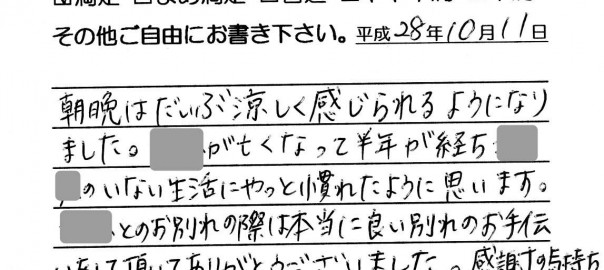 その他ご自由にお書き下さい。平成28年10月11日
朝晩はだいぶ涼しく感じられるようになり
ました。が亡くなって半年が経ち
のいない生活にやっと慣れたように思います。
とのお別れの際は本当に良い別れのお手伝
いをして頂いてありがとうございました。感謝の気持ち